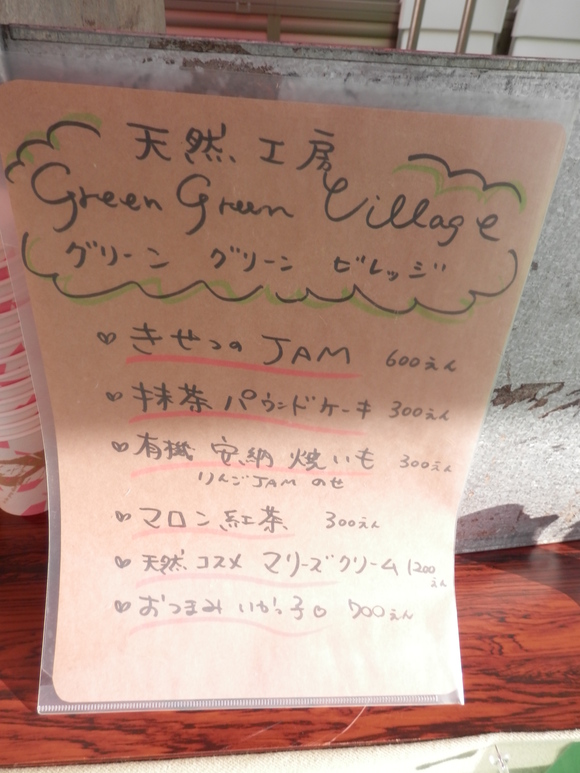 天然工房
Green Green Village
グリーン グリーン ビレッジ
きせつの JAM 600えん
抹茶 パウンドケーキ 300えん
有機 安納 焼いも 300えん
りんごJAM のせ
マロン紅茶 300えん
天然コスメ マリーズクリーム 1200えん
おつまみ いかっ子 700えん